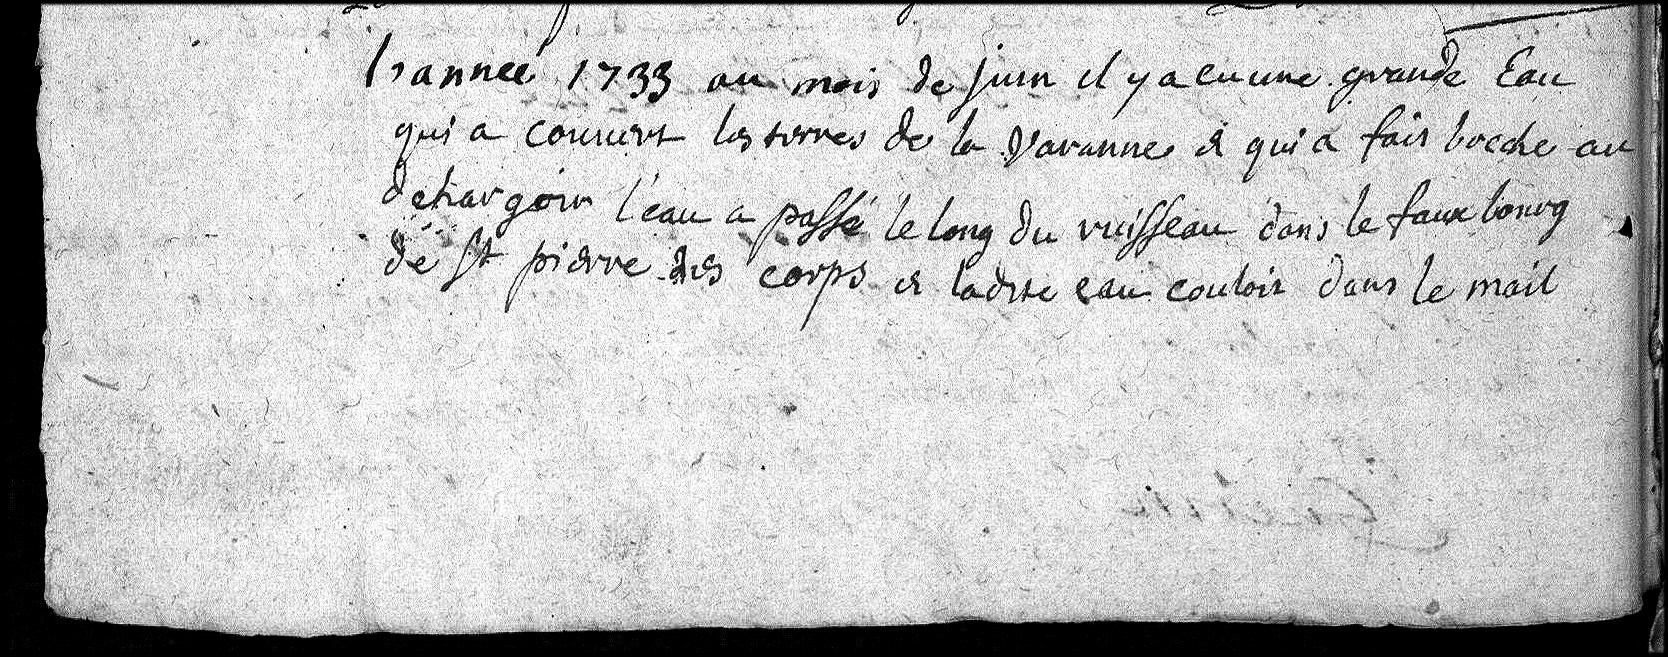 L'année 1733 au mois de juin il y a eu une grande Eau
qui a couuert les terres de la Varanne et qui a fait breche au
dechargoir l'eau a passé le long du ruisseau dans le faux bourg
de St pierre des corps et ladite eau couloit dans le mail